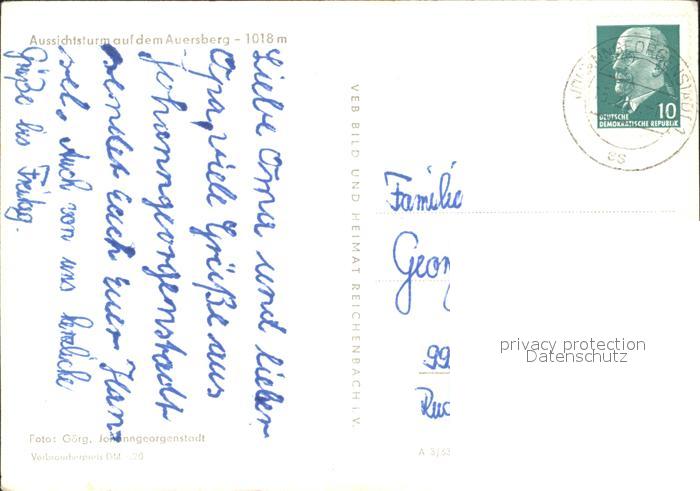 Aussichtsturm auf dem Auersberg – 1018 m
Liebe Oma und lieber
Opa, viele Grüße aus
Johanngeorgenstadt
sendet euch Euer Han-
sel. Auch von uns herzliche
Grüße bis Freitag.
Foto: Görg, Johanngeorgenstadt
Verbraucherpreis DM -.20
VEB BILD UND HEIMAT REICHENBACH i. V.
DEUTSCHE
DEMOKRATISCHE REPUBLIK
10
as
Familie
Geor
99
A 3/63
privacy protection
Datenschutz